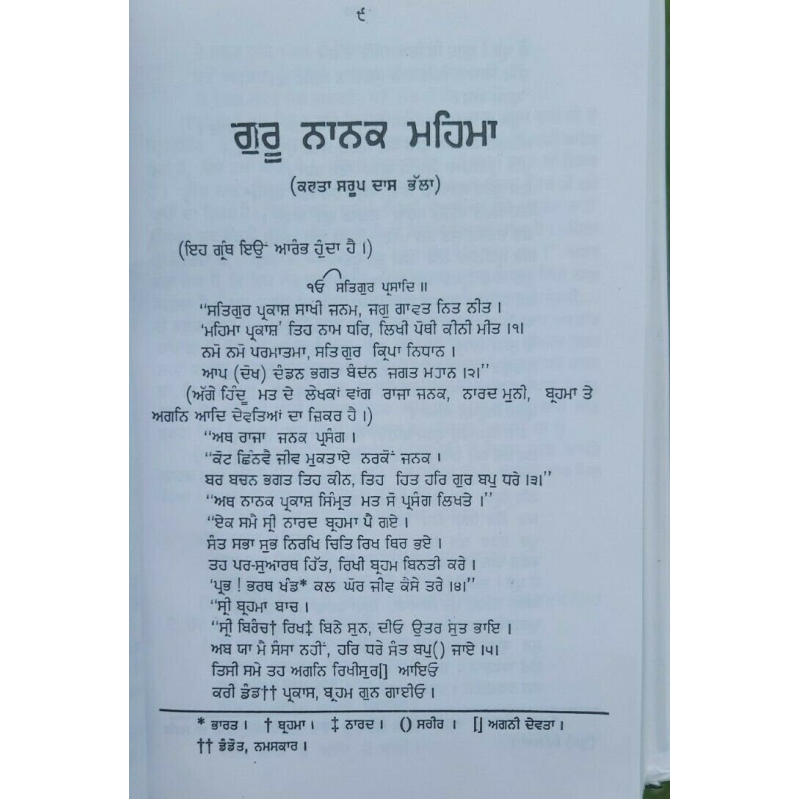 ੯
ਗੁਰੂ ਨਾਨਕ ਮਹਿਮਾ
(ਕਰਤਾ ਸਰੂਪ ਦਾਸ ਭੱਲਾ)
(ਇਹ ਗ੍ਰੰਥ ਇਉਂ ਆਰੰਭ ਹੁੰਦਾ ਹੈ।)
੧ਓ ਸਤਿਗੁਰ ਪ੍ਰਸਾਦਿ॥
“ਸਤਿਗੁਰ ਪ੍ਰਕਾਸ਼ ਸਾਖੀ ਜਨਮ, ਜਗੁ ਗਾਵਤ ਨਿਤ ਨੀਤ।
‘ਮਹਿਮਾ ਪ੍ਰਕਾਸ਼’ ਤਿਹ ਨਾਮ ਧਰਿ, ਲਿਖੀ ਪੋਥੀ ਕੀਨੀ ਮੀਤ।੧।
ਨਮੋ ਨਮੋ ਪਰਮਾਤਮਾ, ਸਤਿਗੁਰ ਕ੍ਰਿਪਾ ਨਿਧਾਨ।
ਆਪ (ਦੋਖ) ਦੰਡਨ ਭਗਤ ਬੰਦਨ ਜਗਤ ਮਹਾਨ।੨।”
(ਅੱਗੇ ਹਿੰਦੂ ਮਤ ਦੇ ਲੇਖਕਾਂ ਵਾਂਗ ਰਾਜਾ ਜਨਕ, ਨਾਰਦ ਮੁਨੀ, ਬ੍ਰਹਮਾ ਤੇ
ਅਗਨਿ ਆਦਿ ਦੇਵਤਿਆਂ ਦਾ ਜ਼ਿਕਰ ਹੈ।)
“ਅਥ ਰਾਜਾ ਜਨਕ ਪ੍ਰਸੰਗ।
“ਕੋਟ ਛਿਨਵੈ ਜੀਵ ਮੁਕਤਾਏ ਨਰਕੋਂ ਜਨਕ।
ਬਰ ਬਚਨ ਭਗਤ ਤਿਹ ਕੀਨ, ਤਿਹ ਹਿਤ ਹਰਿ ਗੁਰ ਬਪੁ ਧਰੇ।੩।”
“ਅਥ ਨਾਨਕ ਪ੍ਰਕਾਸ਼ ਸਿੰਮ੍ਰਤ ਮਤ ਸੋ ਪ੍ਰਸੰਗ ਲਿਖਤੇ।”
“ਏਕ ਸਮੈ ਸ੍ਰੀ ਨਾਰਦ ਬ੍ਰਹਮਾ ਪੈ ਗਏ।
ਸੰਤ ਸਭਾ ਸੁਭ ਨਿਰਖਿ ਚਿਤਿ ਰਿਖ ਥਿਰ ਭੁਏ।
ਤਹ ਪਰ-ਸੁਆਰਥ ਹਿੱਤ, ਰਿਖੀ ਬ੍ਰਹਮ ਬਿਨਤੀ ਕਰੇ।
‘ਪ੍ਰਭ! ਭਰਥ ਖੰਡ* ਕਲ ਘੋਰ ਜੀਵ ਕੈਸੇ ਤਰੇ।੪।”
“ਸ੍ਰੀ ਬ੍ਰਹਮਾ ਬਾਚ।
“ਸ੍ਰੀ ਬਿਰੰਚ† ਰਿਖ‡ ਬਿਨੇ ਸੁਨ, ਦੀਓ ਉਤਰ ਸੁਤ ਭਾਇ।
ਅਬ ਯਾ ਮੈ ਸੰਸਾ ਨਹੀਂ, ਹਰਿ ਧਰੇ ਸੰਤ ਬਪੁ() ਜਾਏ।੫।
ਤਿਸੀ ਸਮੇ ਤਹ ਅਗਨਿ ਰਿਖੀਸੁਰ[] ਆਇਓ
ਕਰੀ ਡੰਡ†† ਪ੍ਰਕਾਸ, ਬ੍ਰਹਮ ਗੁਨ ਗਾਈਓ।
* ਭਾਰਤ। † ਬ੍ਰਹਮਾ। ‡ ਨਾਰਦ। () ਸਰੀਰ। [] ਅਗਨੀ ਦੇਵਤਾ।
†† ਡੰਡੌਤ, ਨਮਸਕਾਰ।